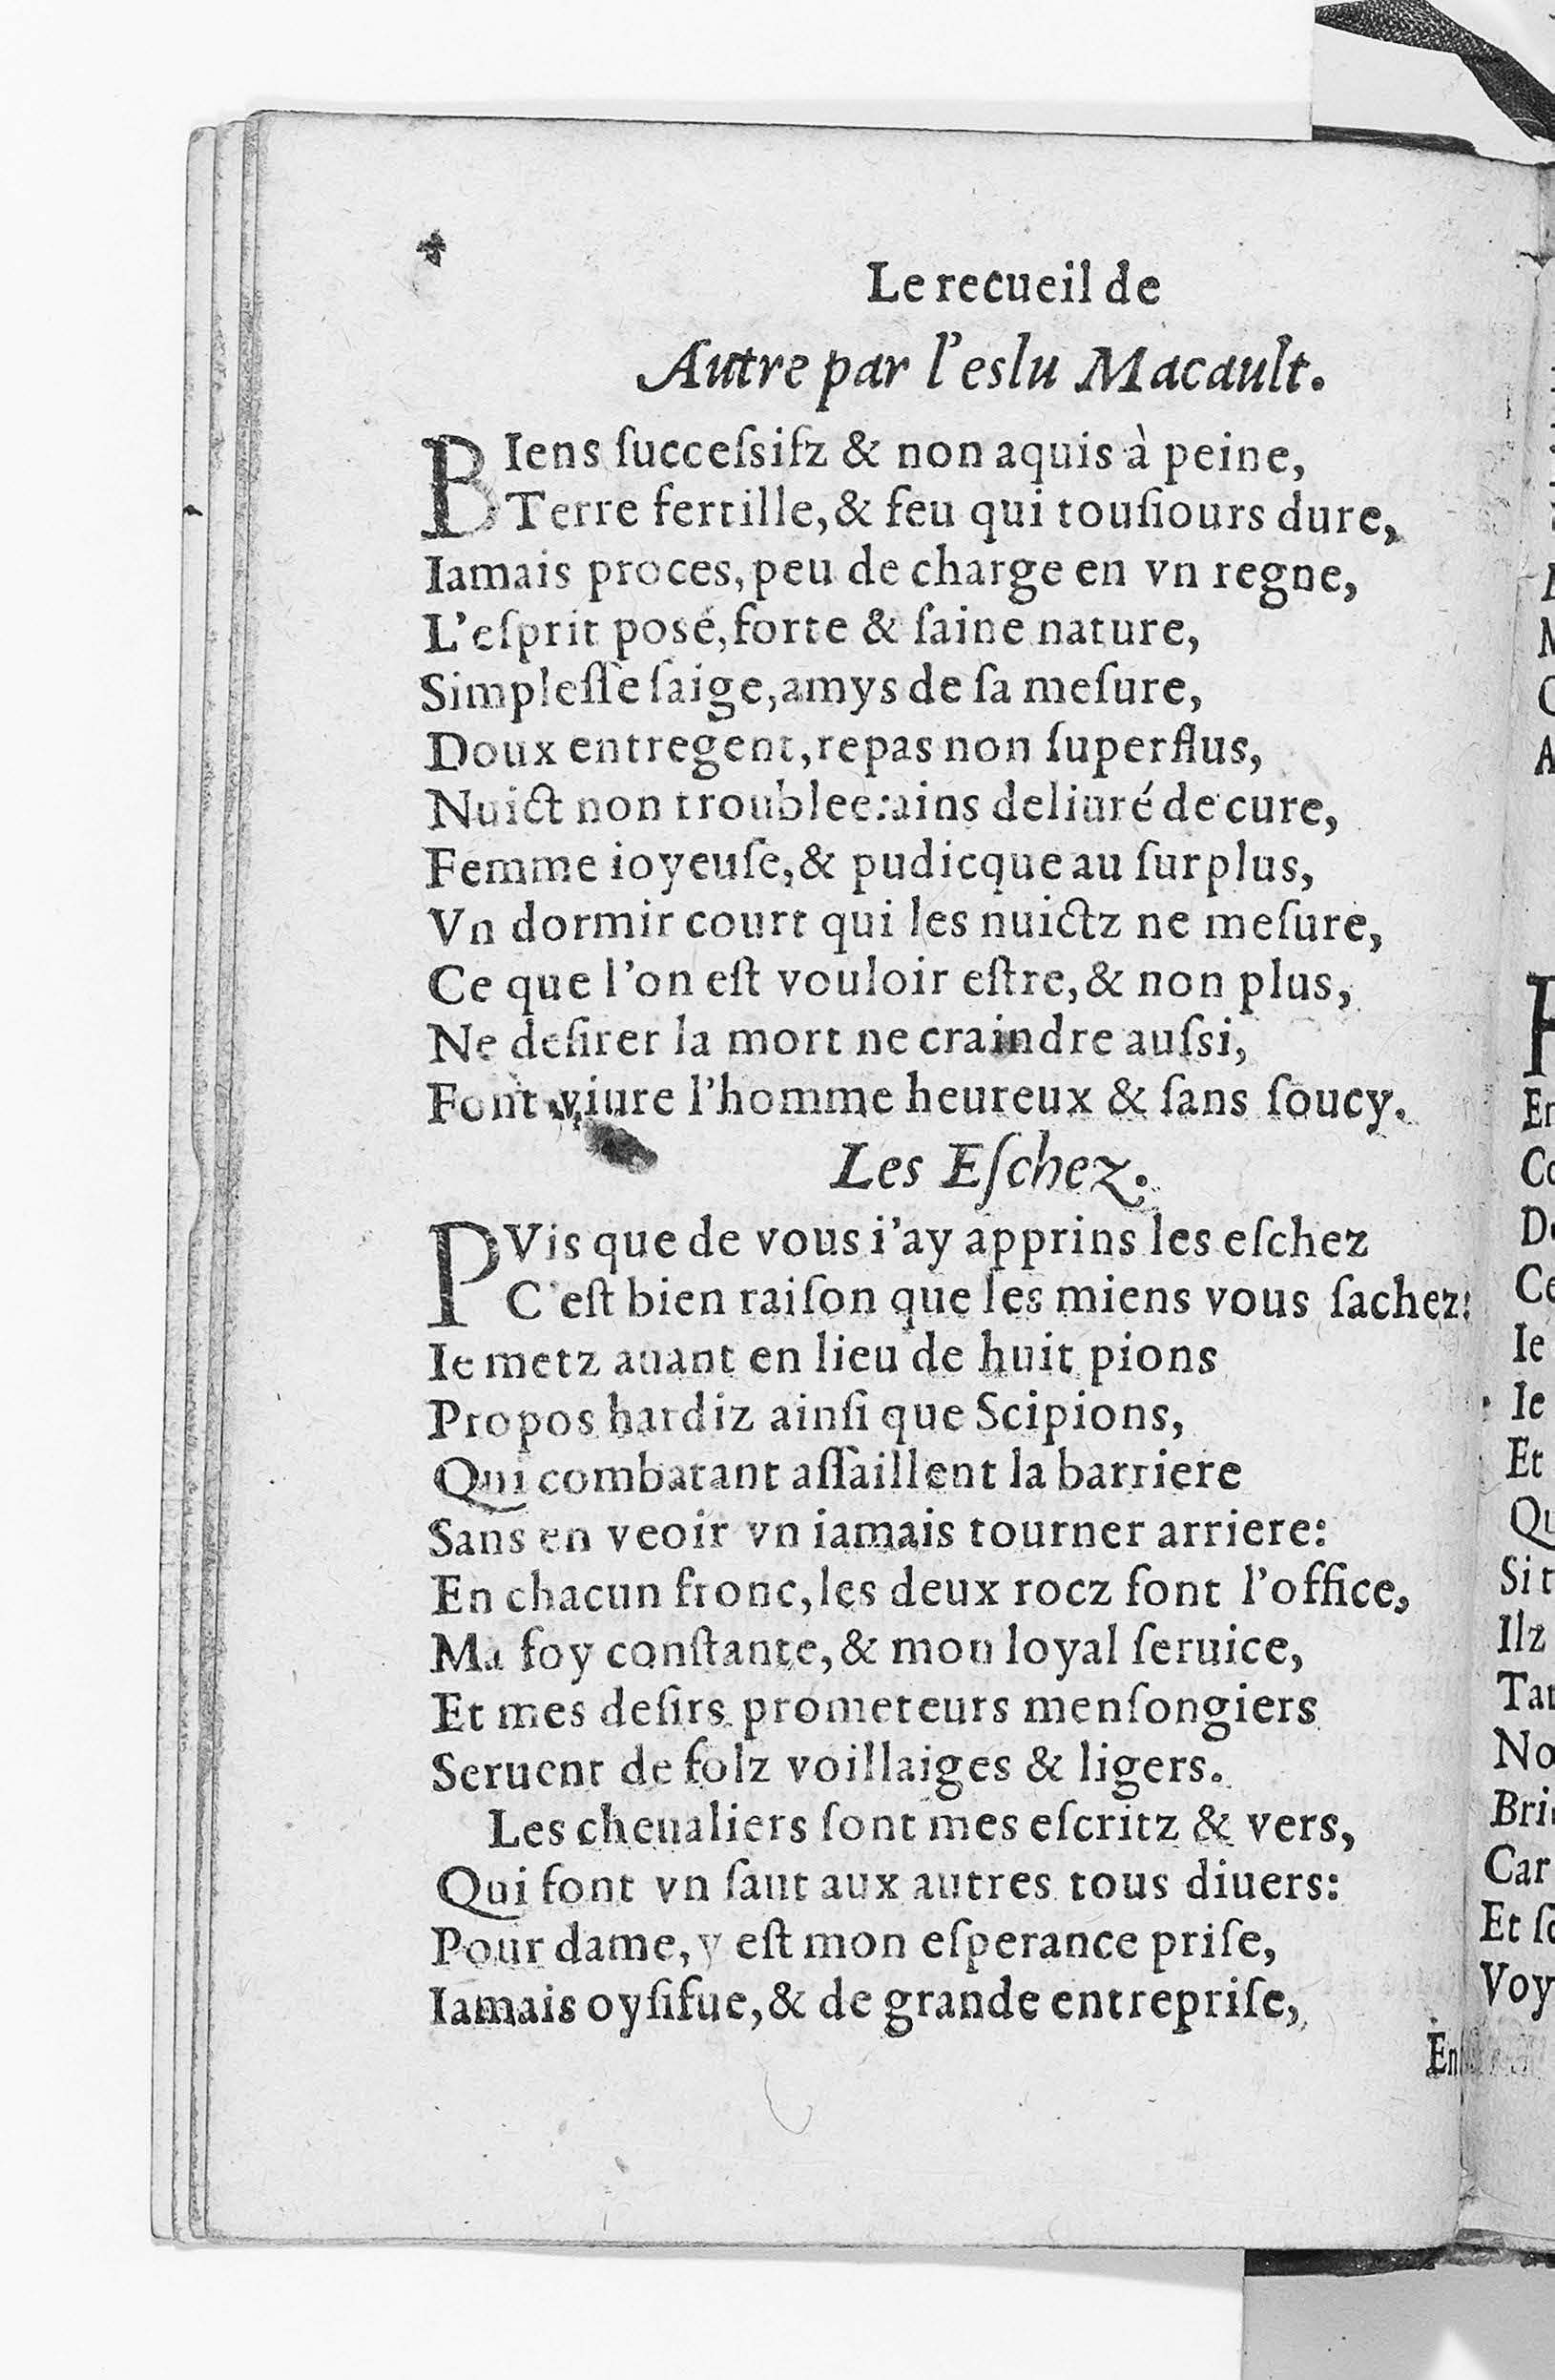 Le recueil de
Autre par l'eslu Macault.
BIens ſucceſsifz & non aquis à peine,
Terre fertille, & feu qui touſiours dure,
Iamais proces, peu de charge en vn regne,
L'eſprit posé, forte & ſaine nature,
Simpleſſe ſaige, amys de ſa meſure,
Doux entregent, repas non ſuperflus,
Nuict non troublee: ains deliuré de cure,
Femme ioyeuſe, & pudicque au ſurplus,
Vn dormir court qui les nuictz ne meſure,
Ce que l'on eſt vouloir eſtre, & non plus,
Ne deſirer la mort ne craindre auſsi,
Font viure l'homme heureux & ſans ſoucy.
Les Eſchez.
PVis que de vous i'ay apprins les eſchez
C'eſt bien raiſon que les miens vous ſachez:
Ie metz auant en lieu de huit pions
Propos hardiz ainſi que Scipions,
Qui combatant aſſaillent la barriere
Sans en veoir vn iamais tourner arriere:
En chacun fronc, les deux rocz font l'office,
Ma foy conſtante, & mon loyal ſeruice,
Et mes deſirs prometeurs menſongiers
Seruent de folz voillaiges & ligers.
Les cheualiers ſont mes eſcritz & vers,
Qui font vn ſaut aux autres tous diuers:
Pour dame, y eſt mon eſperance priſe,
Iamais oyſifue, & de grande entrepriſe,
En
Co
Ce
Ie
Ie
Et
Qu
Si t
Ilz
Tan
No
Bri
Car
Et ſo
Voy